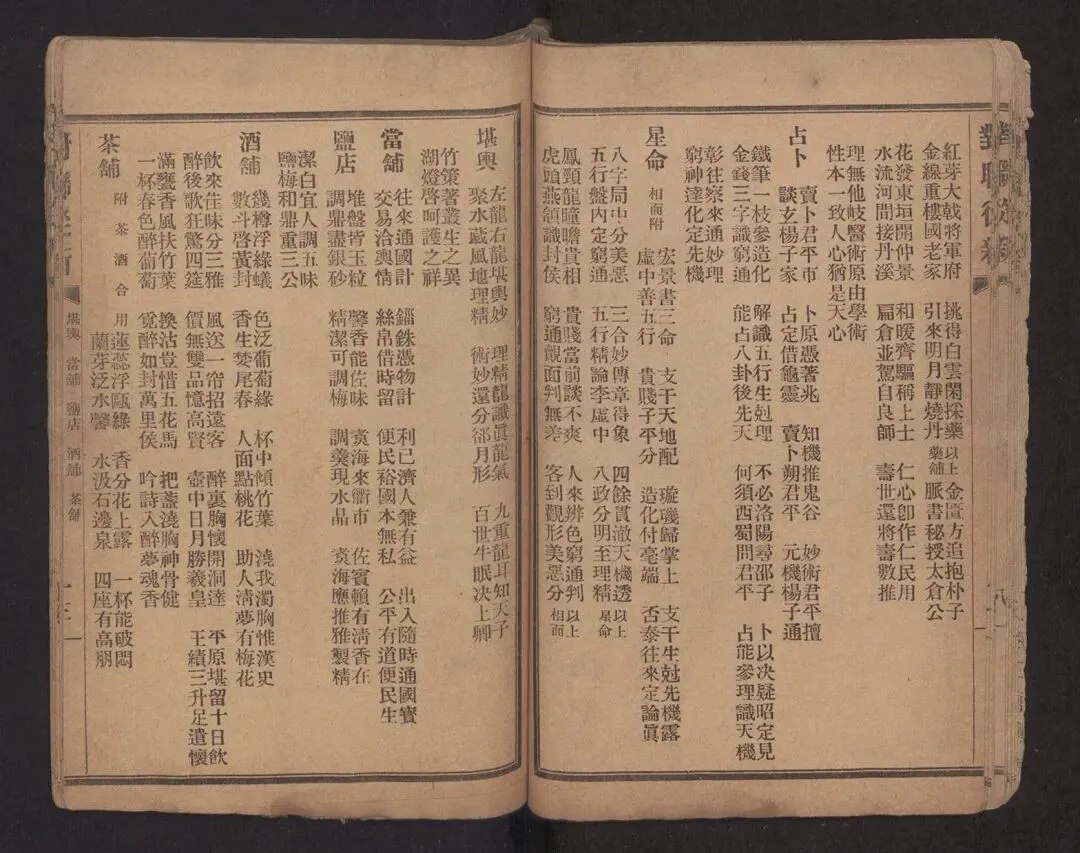 紅芽大戟將軍府　挑得白雲閑採藥　以上　金匱方追抱朴子
金線重樓國老家　引來明月靜燒丹　藥舖　脈書秘授太倉公
花發東垣開仲景　和暖齊驅稱上士　仁心卽作仁民用
水流河間接丹溪　扁倉並駕自良師　壽世還將壽數推
理無他岐醫術原由學術
性本一致人心猶是天心
占卜
賣卜君平市　卜原憑蓍兆　知機推鬼谷　妙術君平擅
談玄楊子家　占定借龜靈　賣卜朔君平　元機楊子通
鐵筆一枝參造化　解識五行生剋理　不必洛陽尋邵子　卜以决疑昭定見
金錢三字識窮通　能占八卦後先天　何須西蜀問君平　占能參理識天機
彰往察來通妙理
窮神達化定先機
星命　相面附
宏景書三命　支干天地配　璇璣歸掌上　支干生尅先機露
虛中善五行　貴賤子平分　造化付毫端　否泰往來定論眞
八字局中分美惡　三合妙傳章得象　四餘貫澈天機透　以上
五行盤內定窮通　五行精論李虛中　八政分明至理精　星命
鳳頸龍瞳瞻貴相　貴賤當前談不爽　人來辨色窮通判　以上
虎頭燕頷識封侯　窮通覿面判無差　客到觀形美惡分　相面
堪輿
左龍右龍堪輿妙　理精龍識眞龍氣　九重龍耳知天子
聚水藏風地理精　術妙還分郤月形　百世牛眠决上卿
竹策著叢生之異
湖燈啓呵護之祥
當舖
往來通國計　錙銖憑物計　利已濟人兼有益　出入隨時通國寳
交易洽輿情　絲帛借時留　便民裕國本無私　公平有道便民生
鹽店
堆盤皆玉粒　馨香能佐味　袁海來衢市　佐賓賴有淸香在
調鼎盡銀砂　精潔可調梅　調羹現水晶　袁海應推雅製精
潔白宜人調五味
鹽梅和鼎重三公
酒舖
幾樽浮綠蟻　色泛葡萄綠　杯中傾竹葉　澆我濁胸惟漢史
數斗啓黃封　香生婪尾春　人面點桃花　助人淸夢有梅花
飲來佳味分三雅　風送一帘招遠客　醉裏胸懷開洞達　平原堪留十日飲
醉後歌狂驚四筵　價無雙品憶高賢　壺中日月勝羲皇　王績三升足遣懷
滿甕香風扶竹葉　換沽豈惜五花馬　把盞澆胸神骨健
一杯春色醉葡萄　覓醉如封萬里侯　吟詩入醉夢魂香
茶舖　附茶酒合用
蓮蕊浮甌綠　香分花上露　一杯能破悶
蘭芽泛水馨　水汲石邊泉　四座有高朋
堪輿　當舖　鹽店　酒舖　茶舖